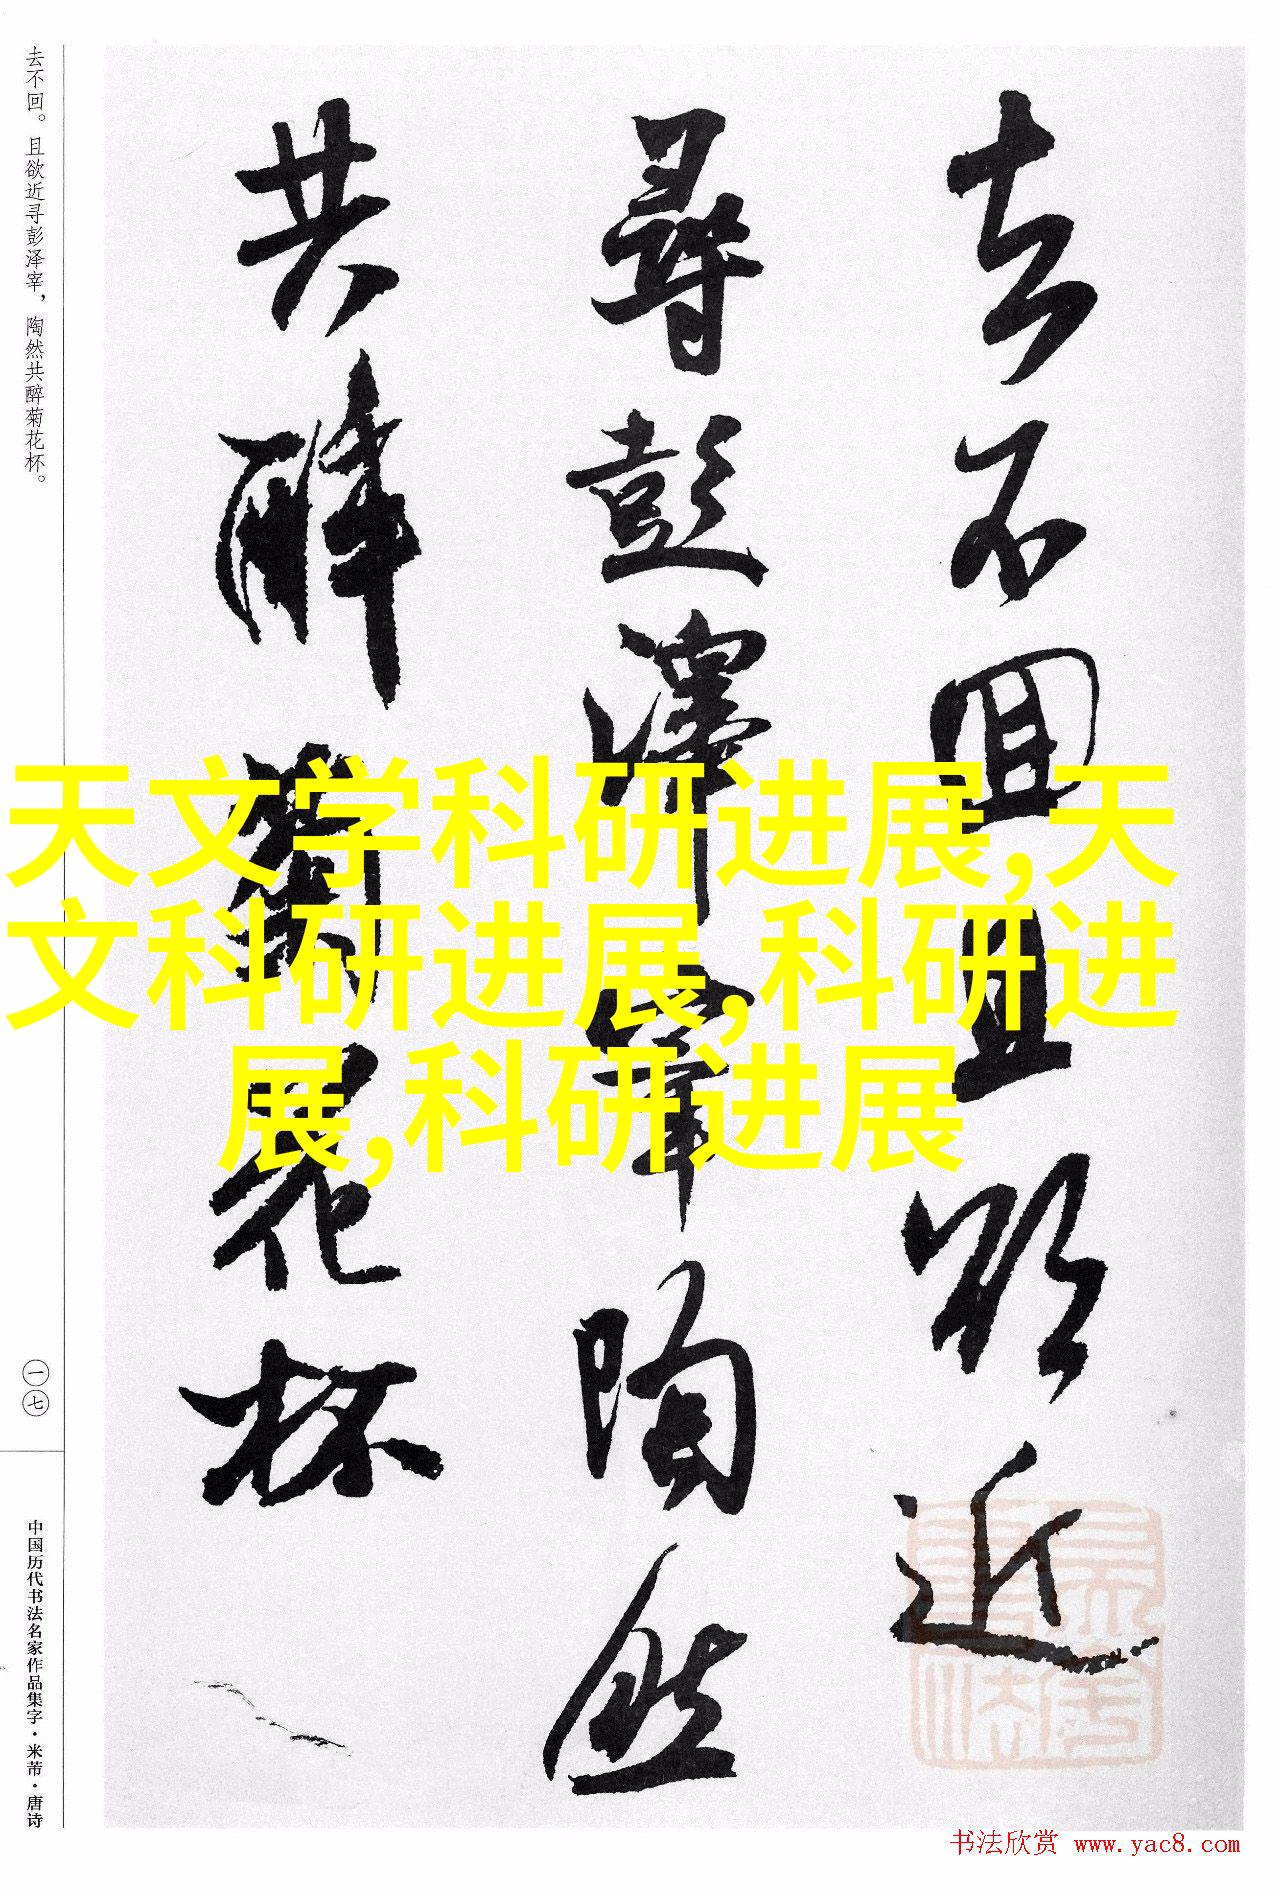 去不回且欲近
寻彭泽宰陶然
共醉菊花杯
去不回。且欲近寻彭泽宰，陶然共醉菊花杯。
一七
中国历代书法名家作品集字·米芾·唐诗
天文学科研进展,天
文科研进展,科研进
展,科研进展
书法欣赏 www.yac8.com